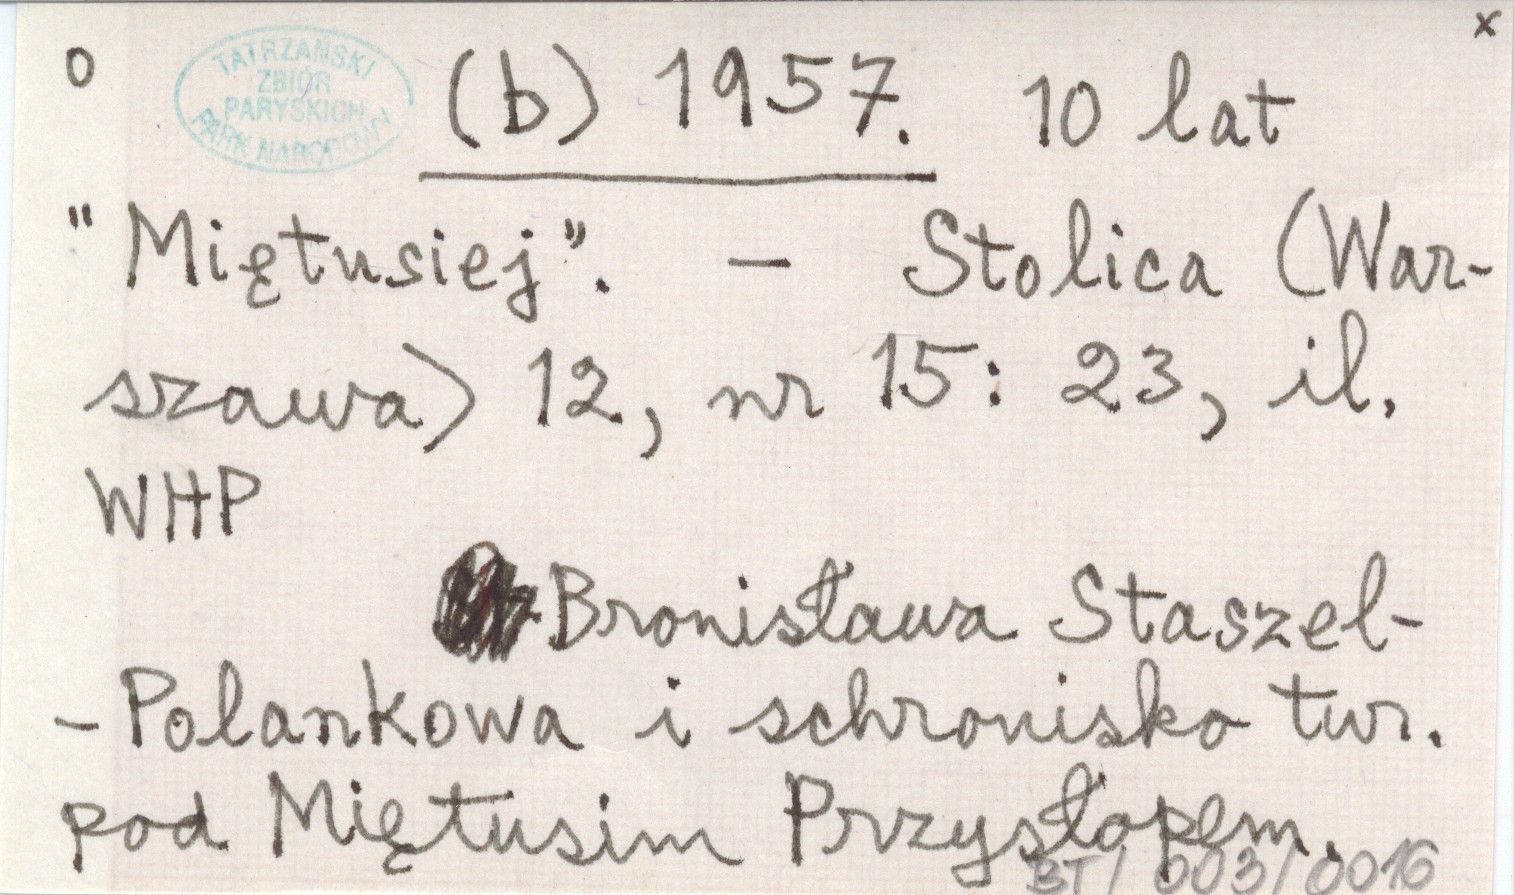 o
x
TATRZAŃSKI
ZBIÓR
PARYSKICH
PARK NARODOWY
(b) 1957. 10 lat
"Miętusiej". – Stolica (War-
szawa) 12, nr 15: 23, il.
WHP
Bronisława Staszel-
-Polankowa i schronisko tur.
pod Miętusim Przysłopem.
BT/003/0016